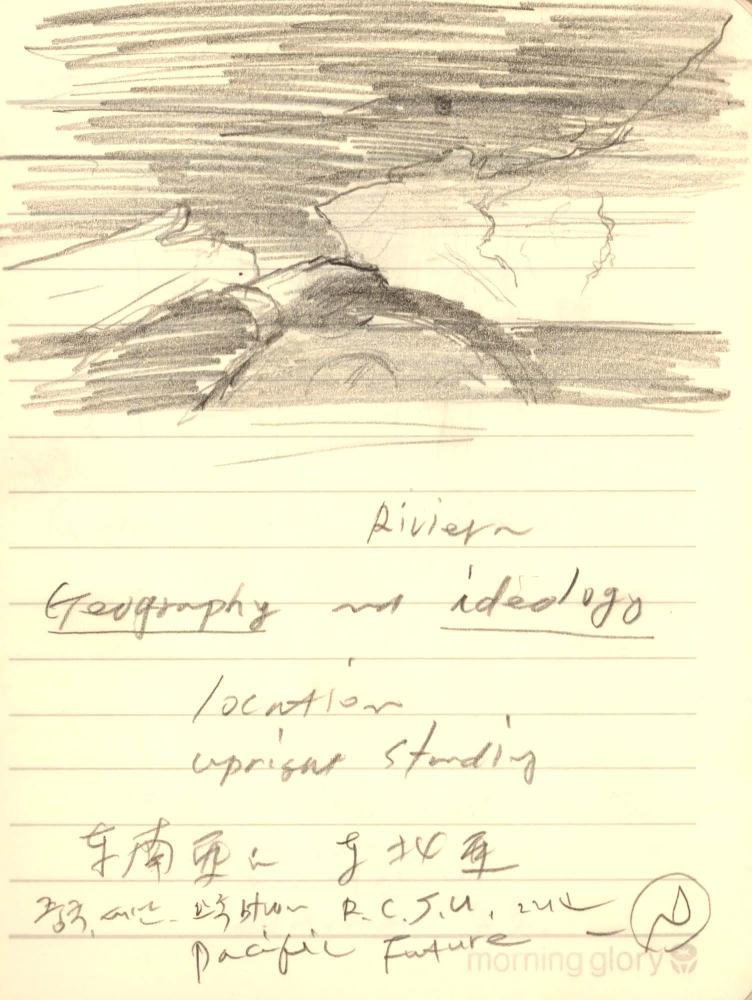 Riviera
Geography and ideology
location
upright standing
东南亚 东北亚
중국, R.C.J.U.
Pacific Future
morning glory